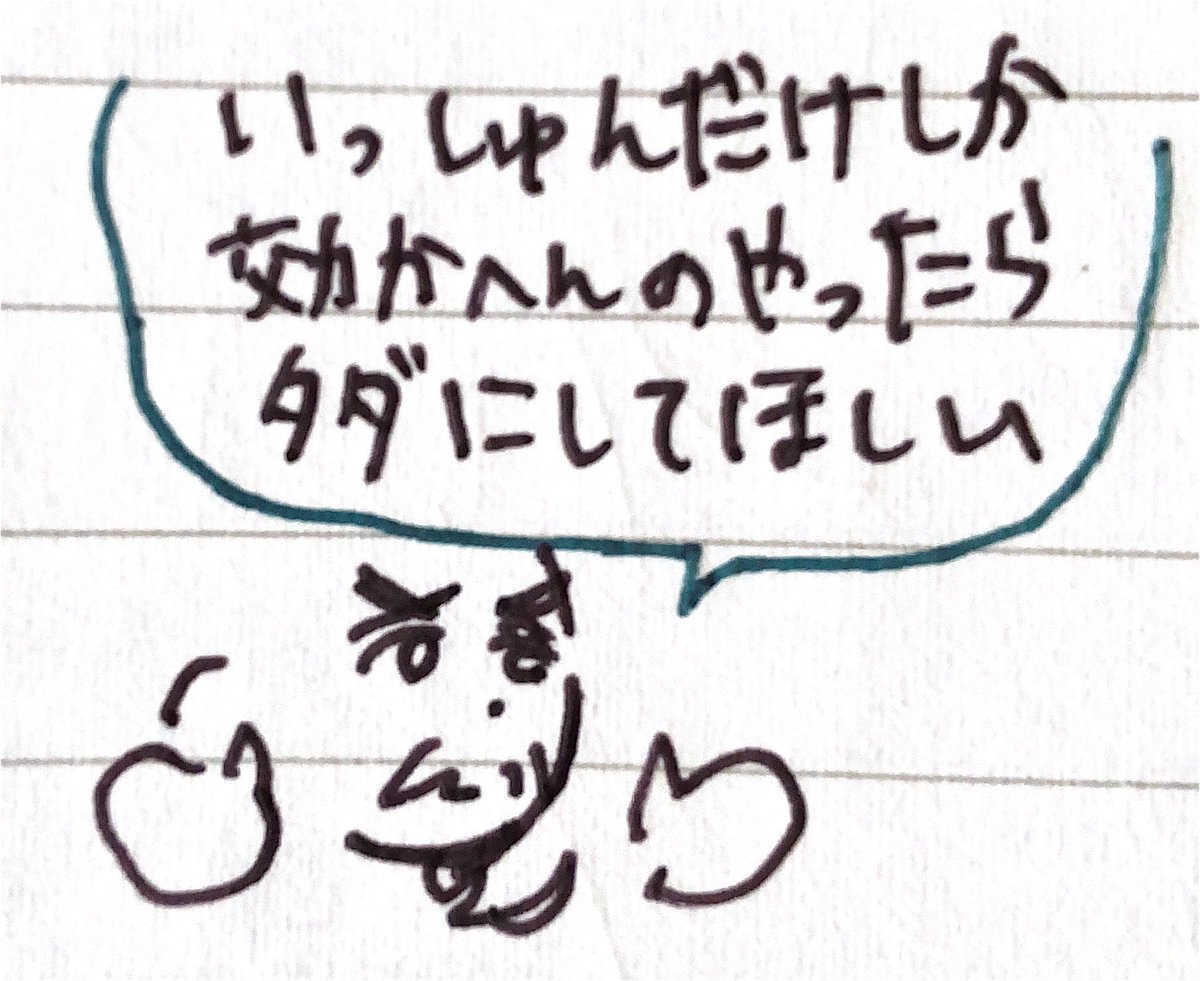 いっしゅんだけしか
効かへんのやったら
タダにしてほしい